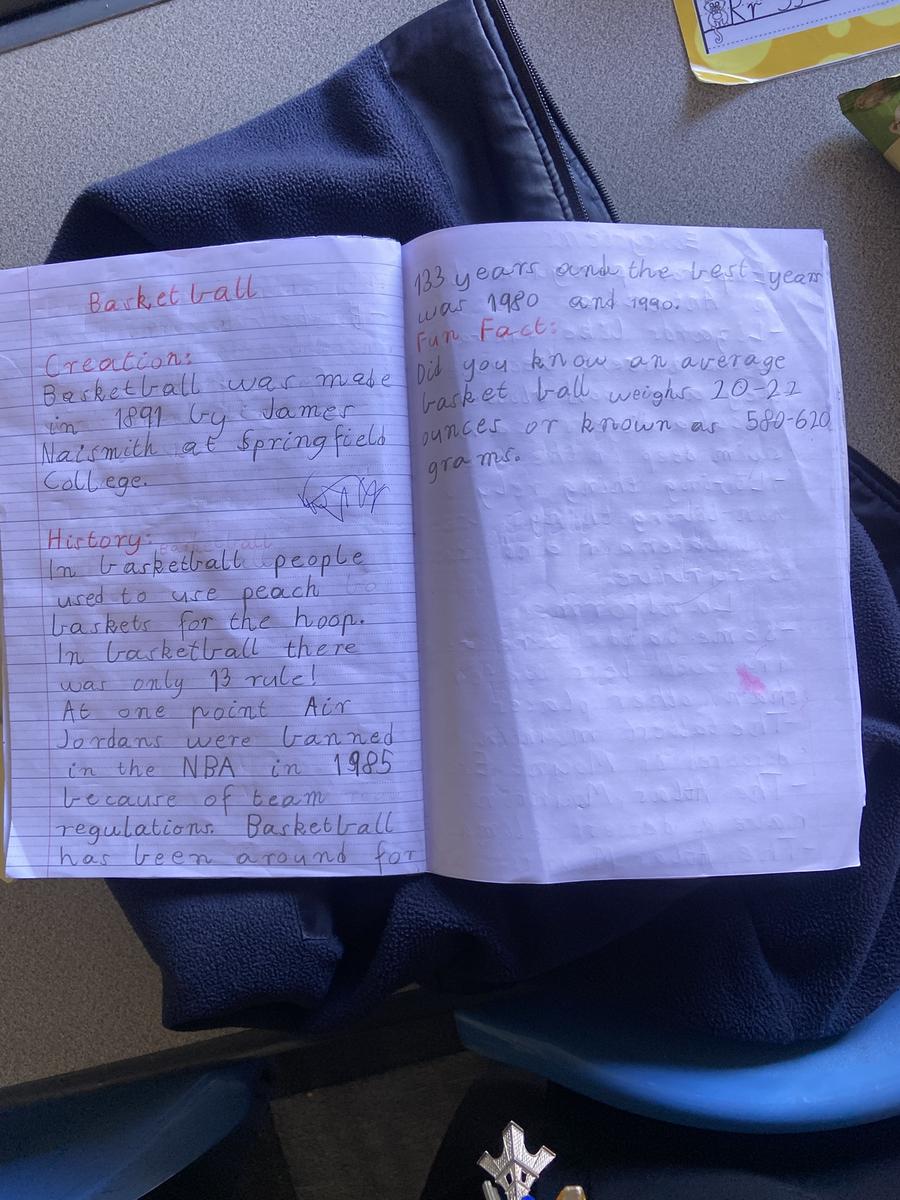 Basketball
Creation:
Basketball was made
in 1891 by James
Naismith at Springfield
College.
History:
In basketball people
used to use peach
baskets for the hoop.
In basketball there
was only 13 rule!
At one point Air
Jordans were banned
in the NBA in 1985
because of team
regulations. Basketball
has been around for
133 years and the best years
was 1980 and 1990.
Fun Fact:
Did you know an average
basket ball weighs 20-22
ounces or known as 580-620
grams.